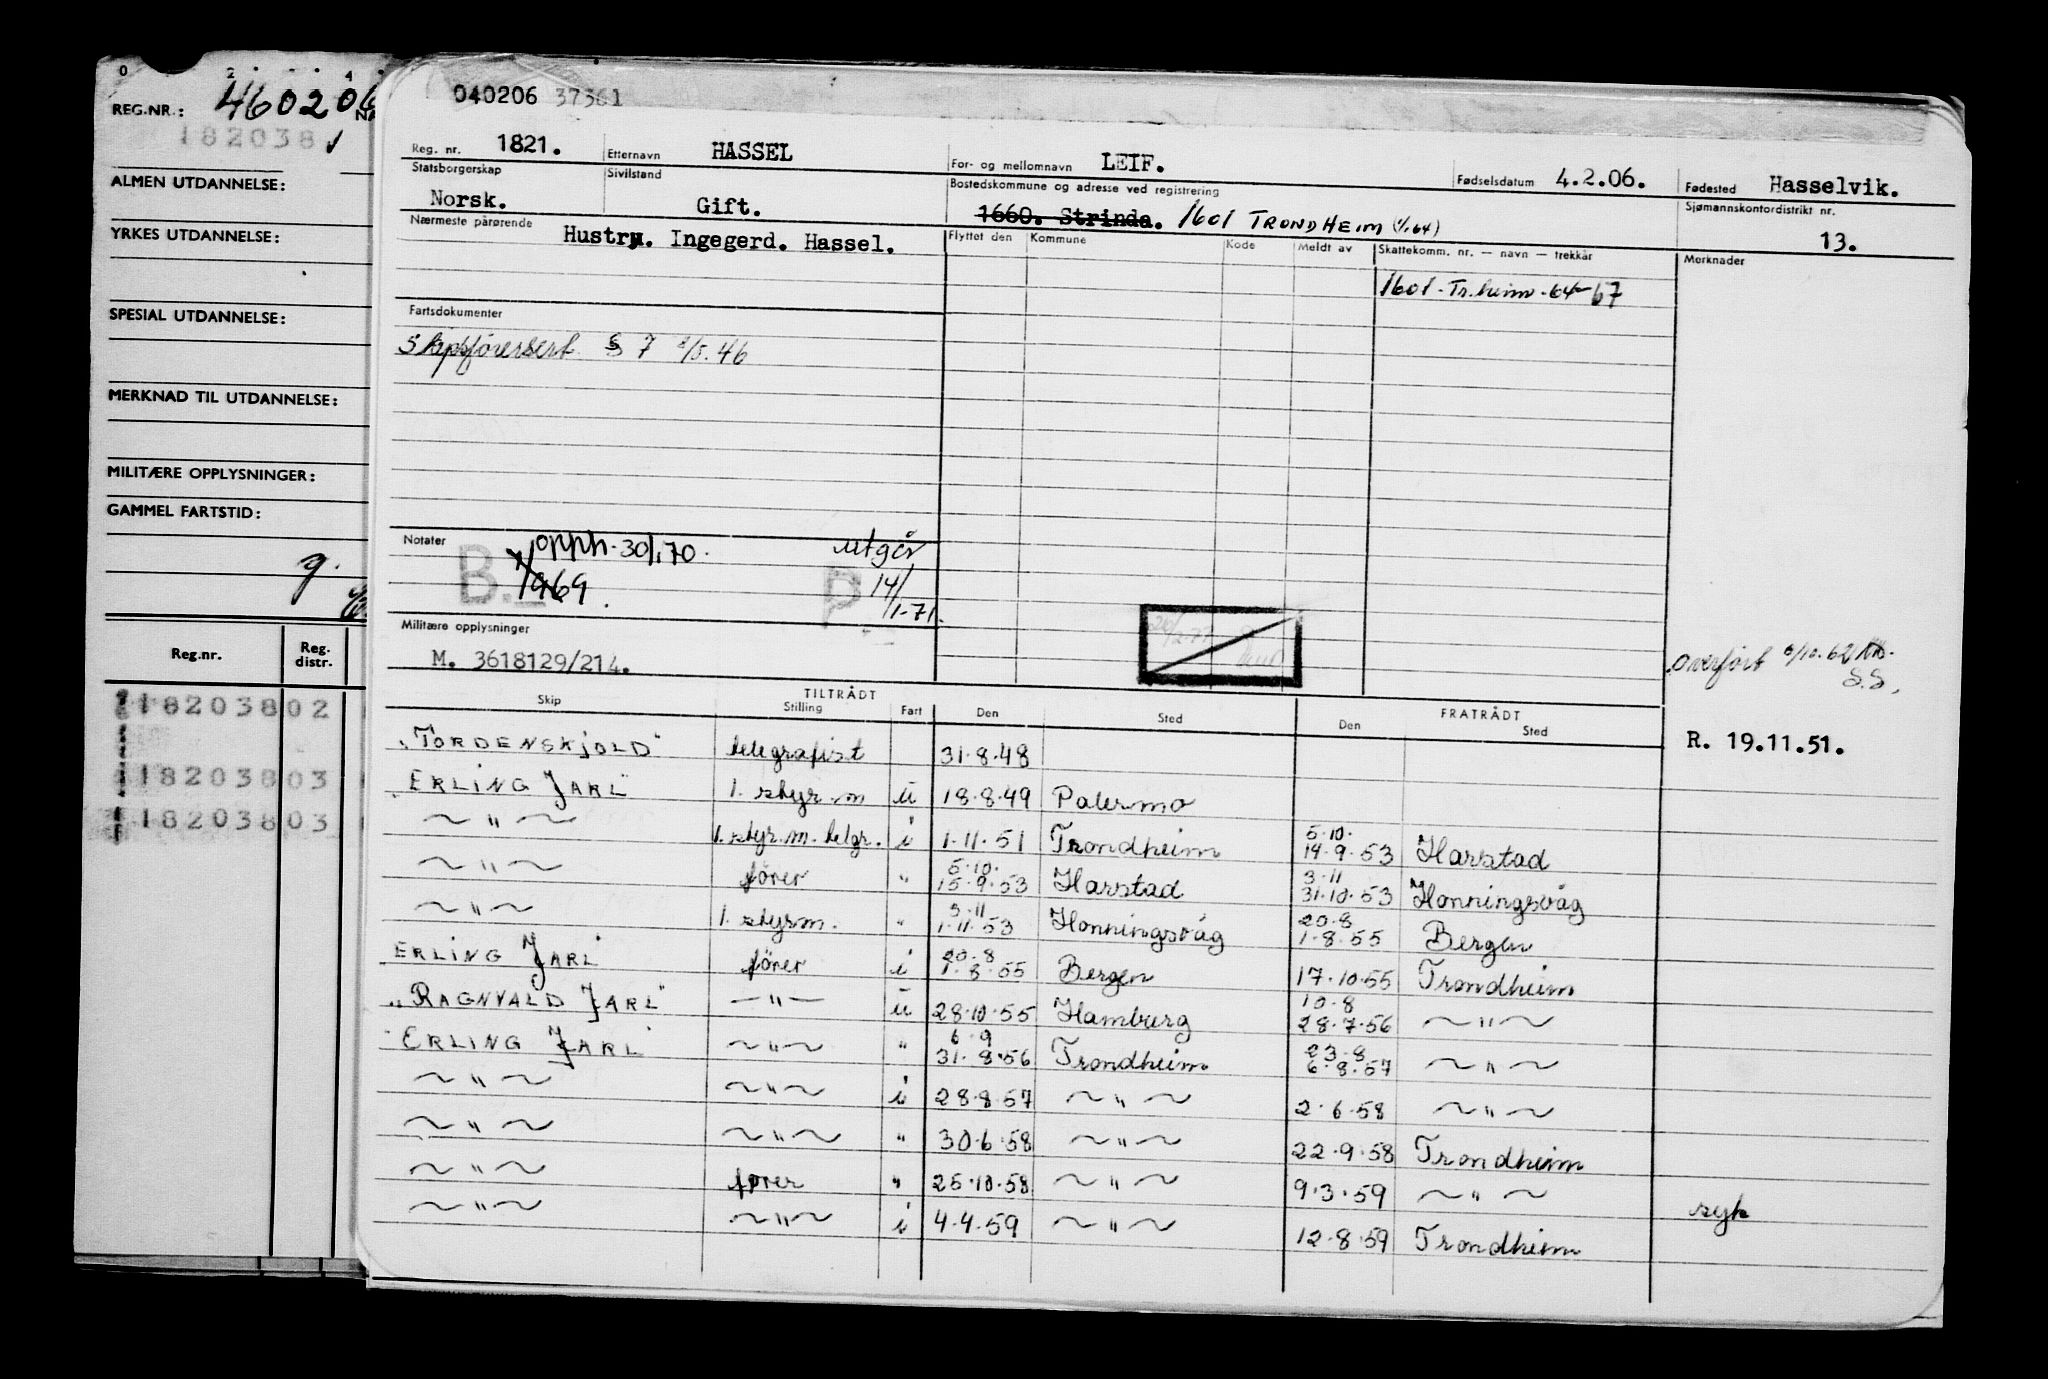 0 2 4
REG.NR.: 460206 NA
182038
ALMEN UTDANNELSE:
YRKES UTDANNELSE:
SPESIAL UTDANNELSE:
MERKNAD TIL UTDANNELSE:
MILITÆRE OPPLYSNINGER:
GAMMEL FARTSTID:
g.
Reg.nr. Reg. distr.
182038 02
182038 03
182038 03
040206 37361
Reg. nr. 1821. Etternavn HASSEL For- og mellomnavn LEIF. Fødselsdatum 4.2.06. Fødested Hasselvik.
Statsborgerskap Norsk. Sivilstand Gift. Bostedskommune og adresse ved registrering 1660. Strinda. 1601 TRONDHEIM (1/1.64) Sjømannskontordistrikt nr. 13.
Nærmeste pårørende Hustru. Ingegerd. Hassel.
Flyttet den Kommune Kode Meldt av Skattekomm. nr. — navn — trekkår Merknader
1601 - Tr.heim - 64-67
Fartsdokumenter
Skipsførersert. § 7 /5.46
Notater opph. 30/1.70. utgår
B. 1969. P 14/1-71.
Militære opplysninger
M. 3618129/214.
overført 6/10.62
S.S.
TILTRÅDT FRATRÅDT
Skip Stilling Fart Den Sted Den Sted
R. 19.11.51.
"TORDENSKJOLD" telegrafist 31.8.48
"ERLING JARL" 1. styr.m u 18.8.49 Palermo
~ " ~ 1. styr.m. telgr. i 1.11.51 Trondheim 5.10. 14.9.53 Harstad
~ " ~ fører " 5.10. 15.9.53 Harstad 3.11 31.10.53 Honningsvåg
~ " ~ 1. styrm. " 3.11 1.11.53 Honningsvåg 20.8 1.8.55 Bergen
ERLING JARL fører i 20.8 1.8.55 Bergen 17.10.55 Trondheim
"RAGNVALD JARL" — " — u 28.10.55 Hamburg 10.8 28.7.56 ~ " ~
ERLING JARL ~ " ~ " 6.9 31.8.56 Trondheim 23.8 6.8.57 ~ " ~
~ " ~ ~ " ~ i 28.8.57 ~ " ~ 2.6.58 ~ " ~
~ " ~ ~ " ~ " 30.6.58 ~ " ~ 22.9.58 Trondheim
~ " ~ fører " 25.10.58 ~ " ~ 9.3.59 ~ " ~ syk
~ " ~ ~ " ~ i 4.4.59 ~ " ~ 12.8.59 Trondheim